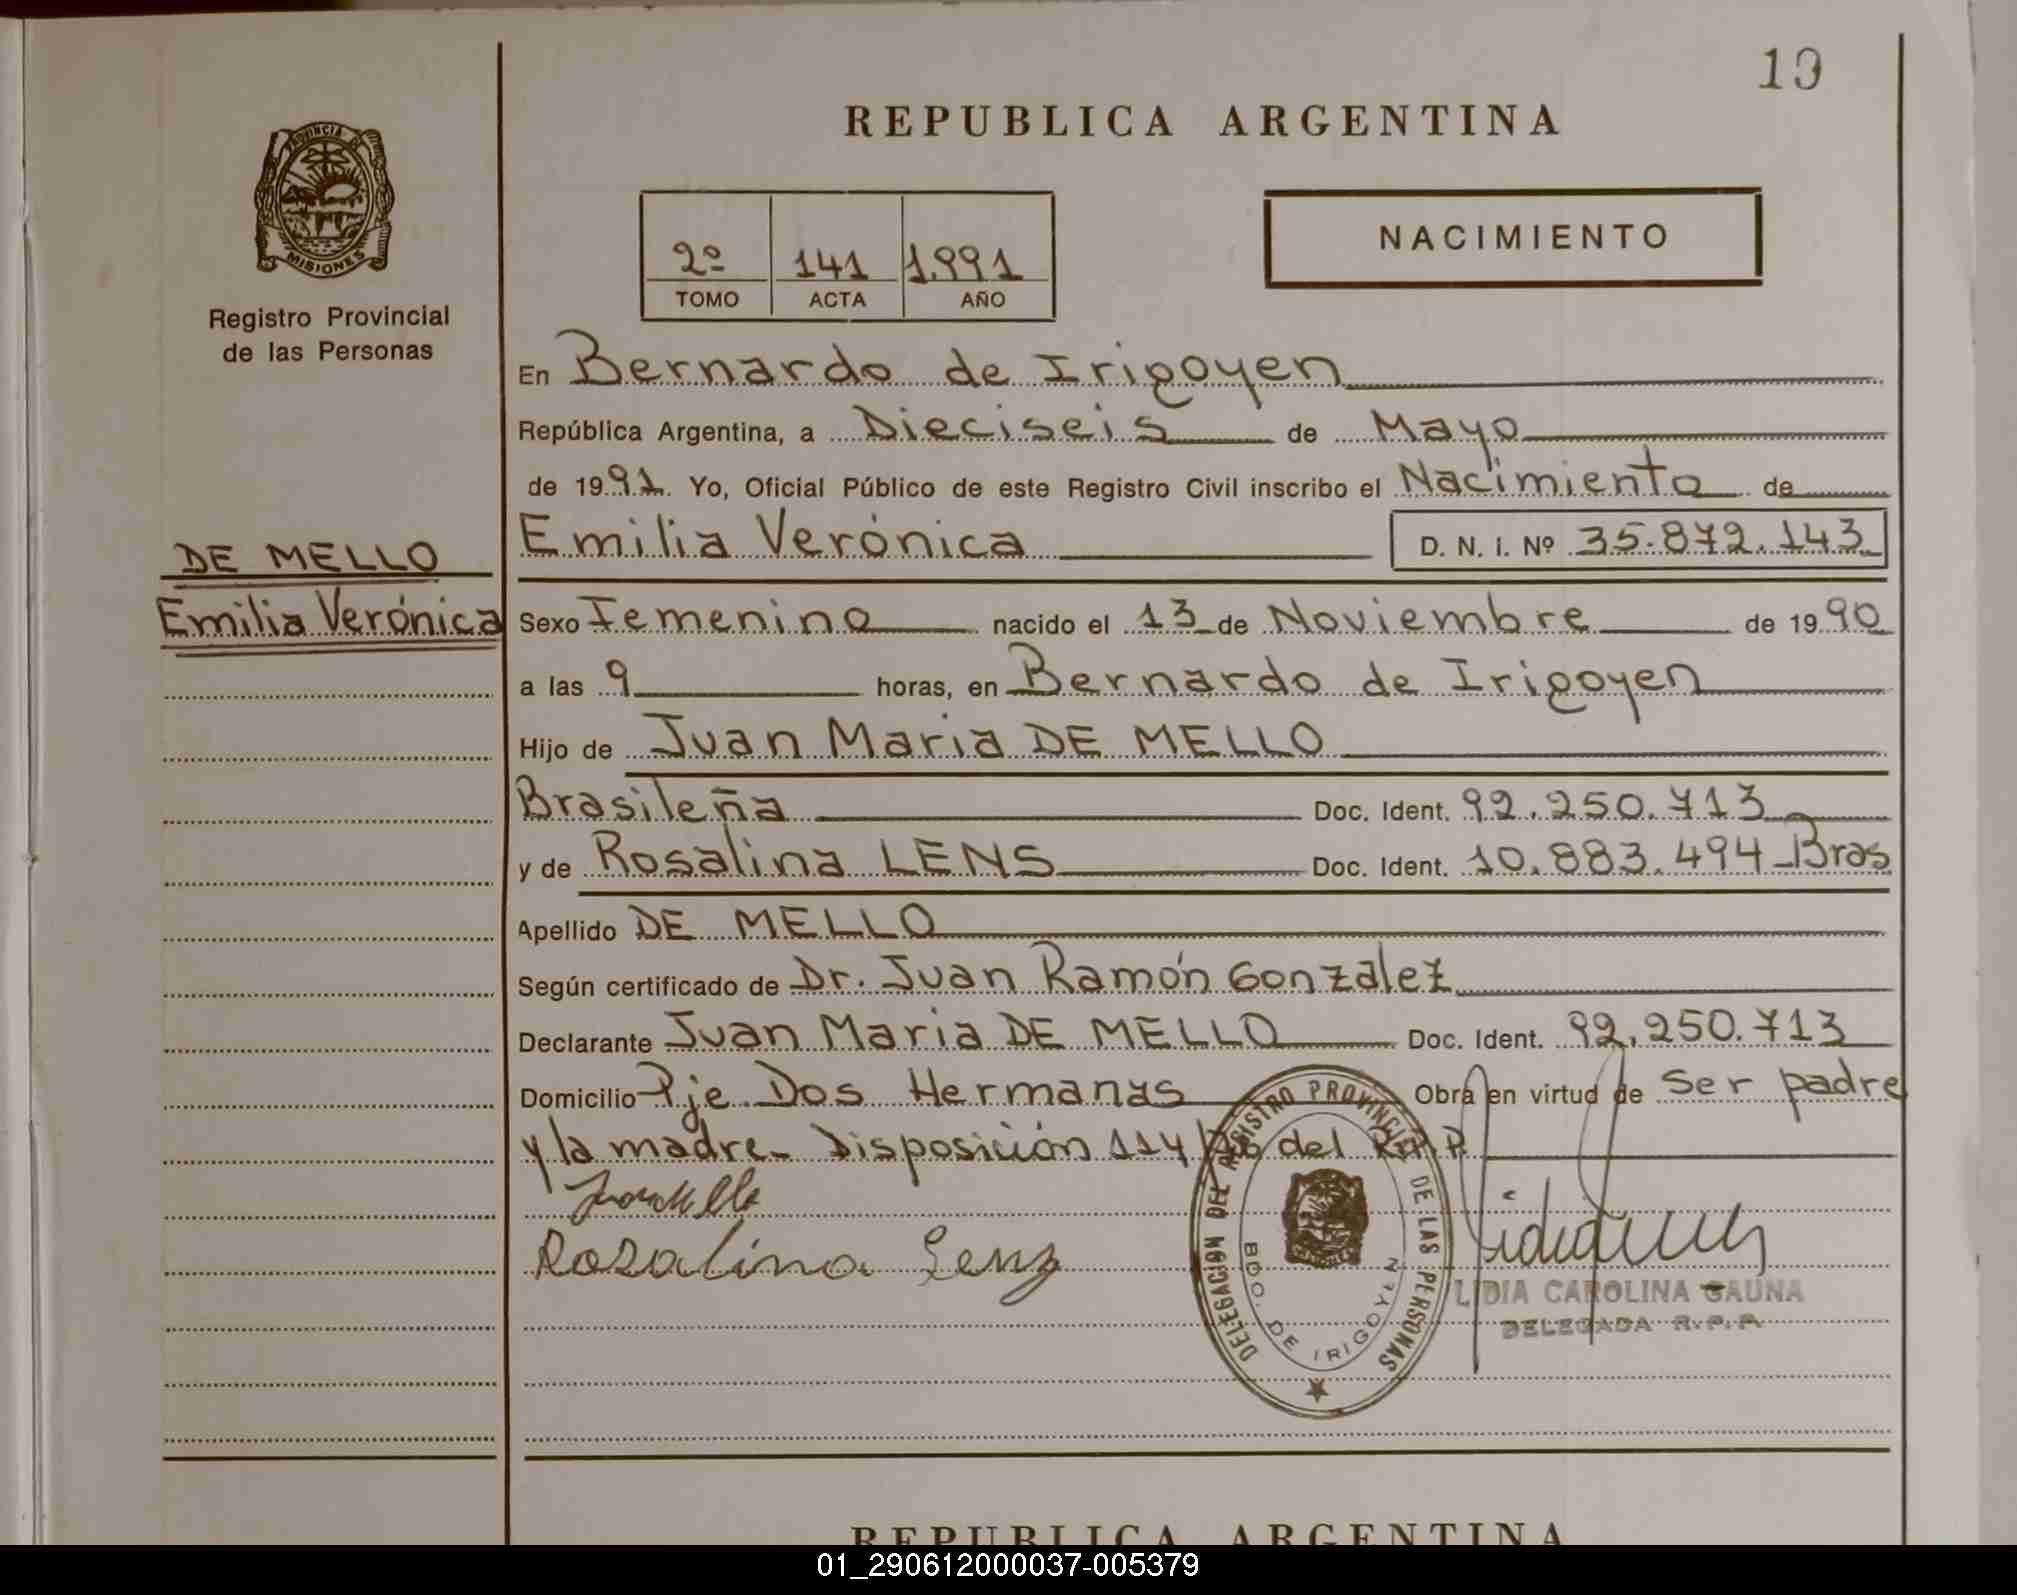 19
REPUBLICA ARGENTINA
PROVINCIA DE MISIONES
Registro Provincial
de las Personas
2º 141 1.991
TOMO ACTA AÑO
NACIMIENTO
En Bernardo de Irigoyen
República Argentina, a Dieciseis de Mayo
de 1991. Yo, Oficial Público de este Registro Civil inscribo el Nacimiento de
DE MELLO
Emilia Verónica
Emilia Verónica D. N. I. Nº 35.872.143
Sexo Femenino nacido el 13 de Noviembre de 1990
a las 9 horas, en Bernardo de Irigoyen
Hijo de Juan Maria DE MELLO
Brasileña Doc. Ident. 92.250.713
y de Rosalina LENS Doc. Ident. 10.883.494 - Bras
Apellido DE MELLO
Según certificado de Dr. Juan Ramón Gonzalez
Declarante Juan Maria DE MELLO Doc. Ident. 92.250.713
Domicilio Pje. Dos Hermanas Obra en virtud de ser padre
y la madre - Disposición 114 del R.P.P.
Rosalina Lenz
DELEGACION DEL REGISTRO PROVINCIAL DE LAS PERSONAS
BDO. DE IRIGOYEN
LIDIA CAROLINA GAUNA
DELEGADA R.P.P.
REPUBLICA ARGENTINA
01_290612000037-005379